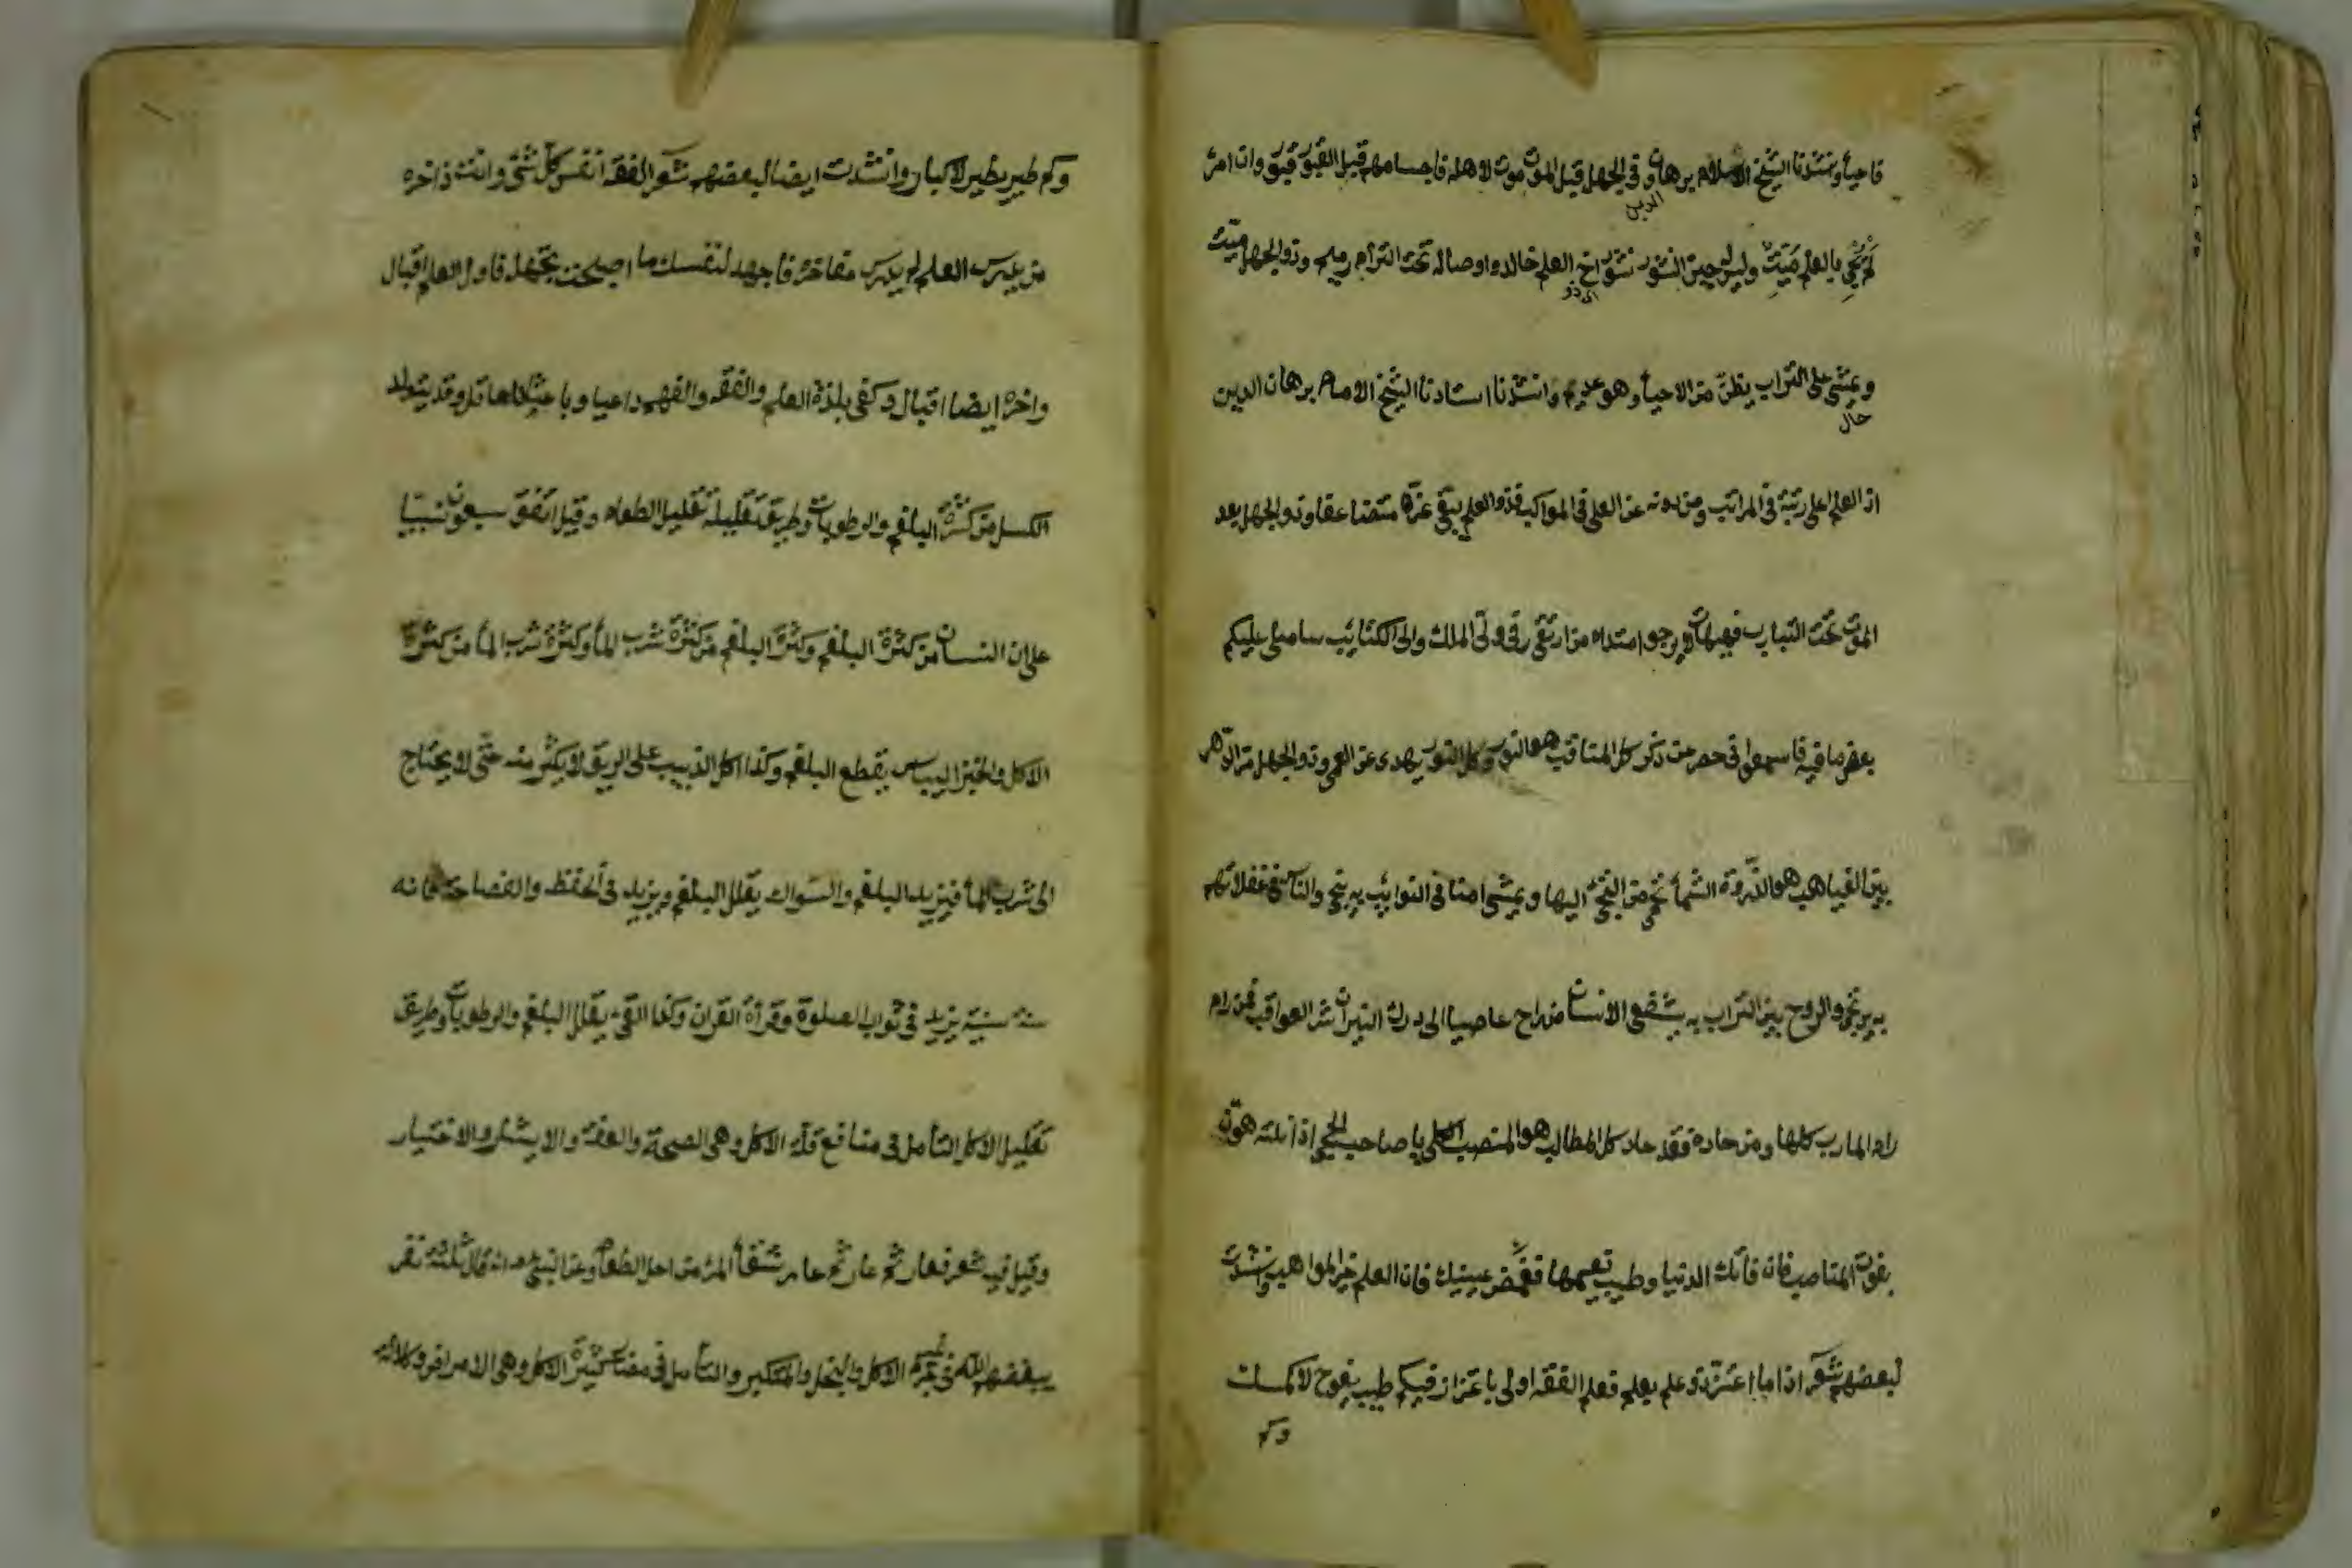 فاحيأ وننشدنا الشيخ الاسلام برهان وفى الجهل قبل الموت موت لاهله فاجسامهم قبل القبور قبور وان امرئ
الدين
لم يحيى بالعلم ميت وليس له حين النشور نشور اخ العلم خالد واوصاله تحت التراب رميم وذو الجهل ميت
اى ذو
ويمشى على التراب يظن من الاحيأ وهو عديم وانشدنا استادنا الشيخ الامام برهان الدين
حال
اذ العلم اعلى رتبة فى المراتب ومن دونه عز العلى فى المواكب فذو العلم يبقى عزه متضاعفا وذو الجهل بعد
الموت تحت التيارب فهيهات لا يرجو امتداه من ارتقى رقى ولى الملك والى الكتائب ساملى عليكم
بعض ما فيه فاسمعوا فى حصر عن ذكر كل المناقب هو النور وكل النور يهدى عن العمى وذو الجهل مر الدهر
بين الغياهب هو الذروة الشمأ تحمى من التجى اليها ويمشى امنا فى النوائب به ينتجى والناس فى غفلاتهم
به يرتجى والروح بين التراب به يشفع الانسان من راح عاصيا الى درك النيران شر العواقب فمن رام
رام المارب كلها ومن حازه فقد حاز كل المطالب هو المنصب العلى يا صاحب الحجى اذا نلته هون
بفوت المناصب فان فاتك الدنيا وطيب نعيمها فغمض عينيك فان العلم خير المواهب وانشدت
لبعضهم شعر اذا ما اعتز ذو علم بعلم فعلم الفقه اولى باعتزاز فكم طيب يفوح لا كمسك
وكم
وكم طير يطير لا كباز وانشدت ايضا لبعضهم شعر الفقه انفس كل شئ وانت ذاخره
من يدرس العلم لم يدرس مفاخره فاجهد لنفسك ما اصبحت تجهله فاول العلم اقبال
واخره ايضا اقبال وكفى بلذة العلم والفقه والفهم داعيا وباعثا للعاقل وقد يتولد
الكسل من كثرة البلغم والرطوبات وطريق تقليله تقليل الطعام وقيل اتفق سبعون نبيا
على ان النسان من كثرة البلغم وكثرة البلغم من كثرة شرب المأ وكثرة شرب المأ من كثرة
الاكل والخبز اليابس يقطع البلغم وكذا اكل الذبيب على الريق لا يكثر منه حتى لا يحتاج
الى شرب المأ فيزيد البلغم والسواك يقلل البلغم ويزيد فى الحفظ والفصاحة فانه
سنة سنية يزيد فى ثواب الصلوة وقرأة القران وكذا القئ يقلل البلغم والرطوبات وطريق
تقليل الاكل التأمل فى منافع قلة الاكل وهى الصحة والعفة والايثار والاختيار
وقيل فيه شعر فعار ثم عار ثم عار شقأ المرء من اجل الطعام وعن النبى عم انه قال ثلثة نفر
يبغضهم الله فى غير جرم الاكل والبخل والمتكبر والتأمل فى مضار كثيرة الاكل وهى الامراض وكلالة